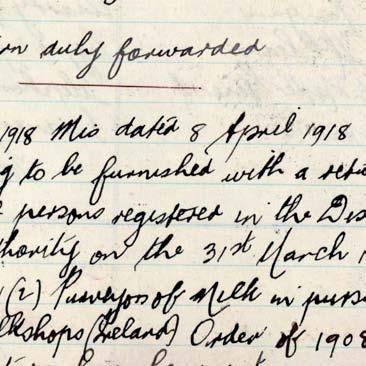 rn duly forwarded
1918 Mis dated 8 April 1918
g to be furnished with a retu
persons registered in the Dis
thority on the 31st March 1
(2) Purveyors of Milk in pursu
lkshops (Ireland) Order of 1908